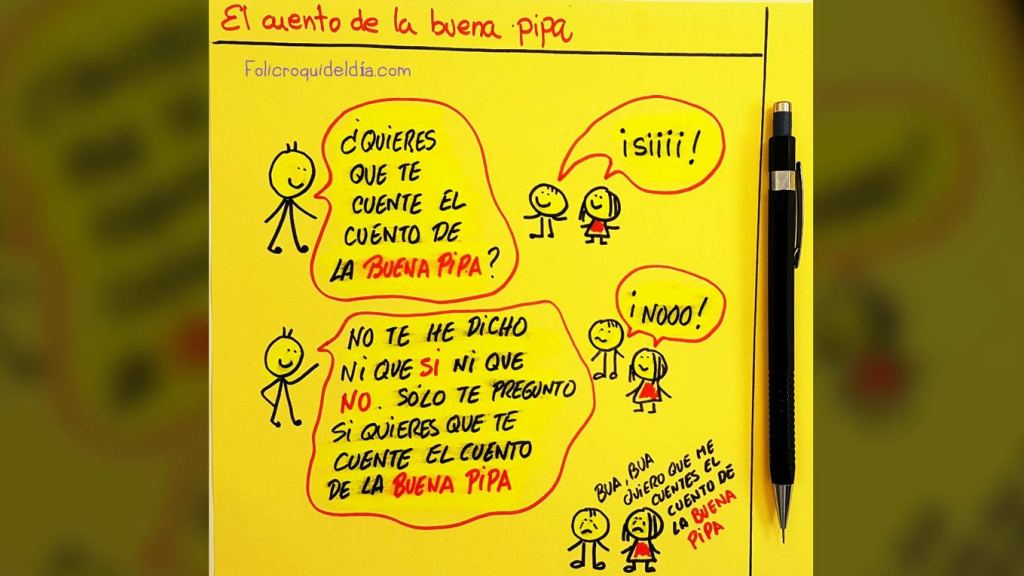 El cuento de la buena pipa
Folicroquideldía.com
¿QUIERES
QUE TE
CUENTE EL
CUENTO DE
LA BUENA PIPA?
¡SIIII!
NO TE HE DICHO
NI QUE SI NI QUE
NO. SÓLO TE PREGUNTO
SI QUIERES QUE TE
CUENTE EL CUENTO
DE LA BUENA PIPA
¡NOOO!
BUA, BUA
QUIERO QUE ME
CUENTES EL
CUENTO DE
LA BUENA
PIPA